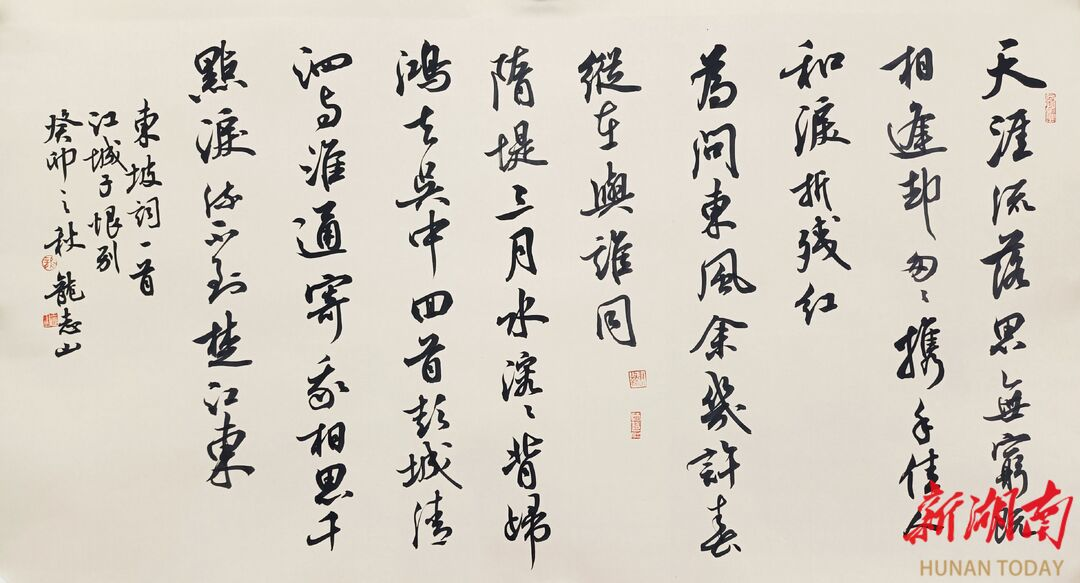 天涯流落思無窮既
相逢却匆〻携手佳人
和淚折残红
為問東風余幾許春
縱在與誰同
隋堤三月水溶〻背歸
鴻去吳中回首彭城清
泗与淮通寄我相思千
點淚流不到楚江東
東坡詞一首
江城子恨别
癸卯之秋 龍志山
新湖南
HUNAN TODAY